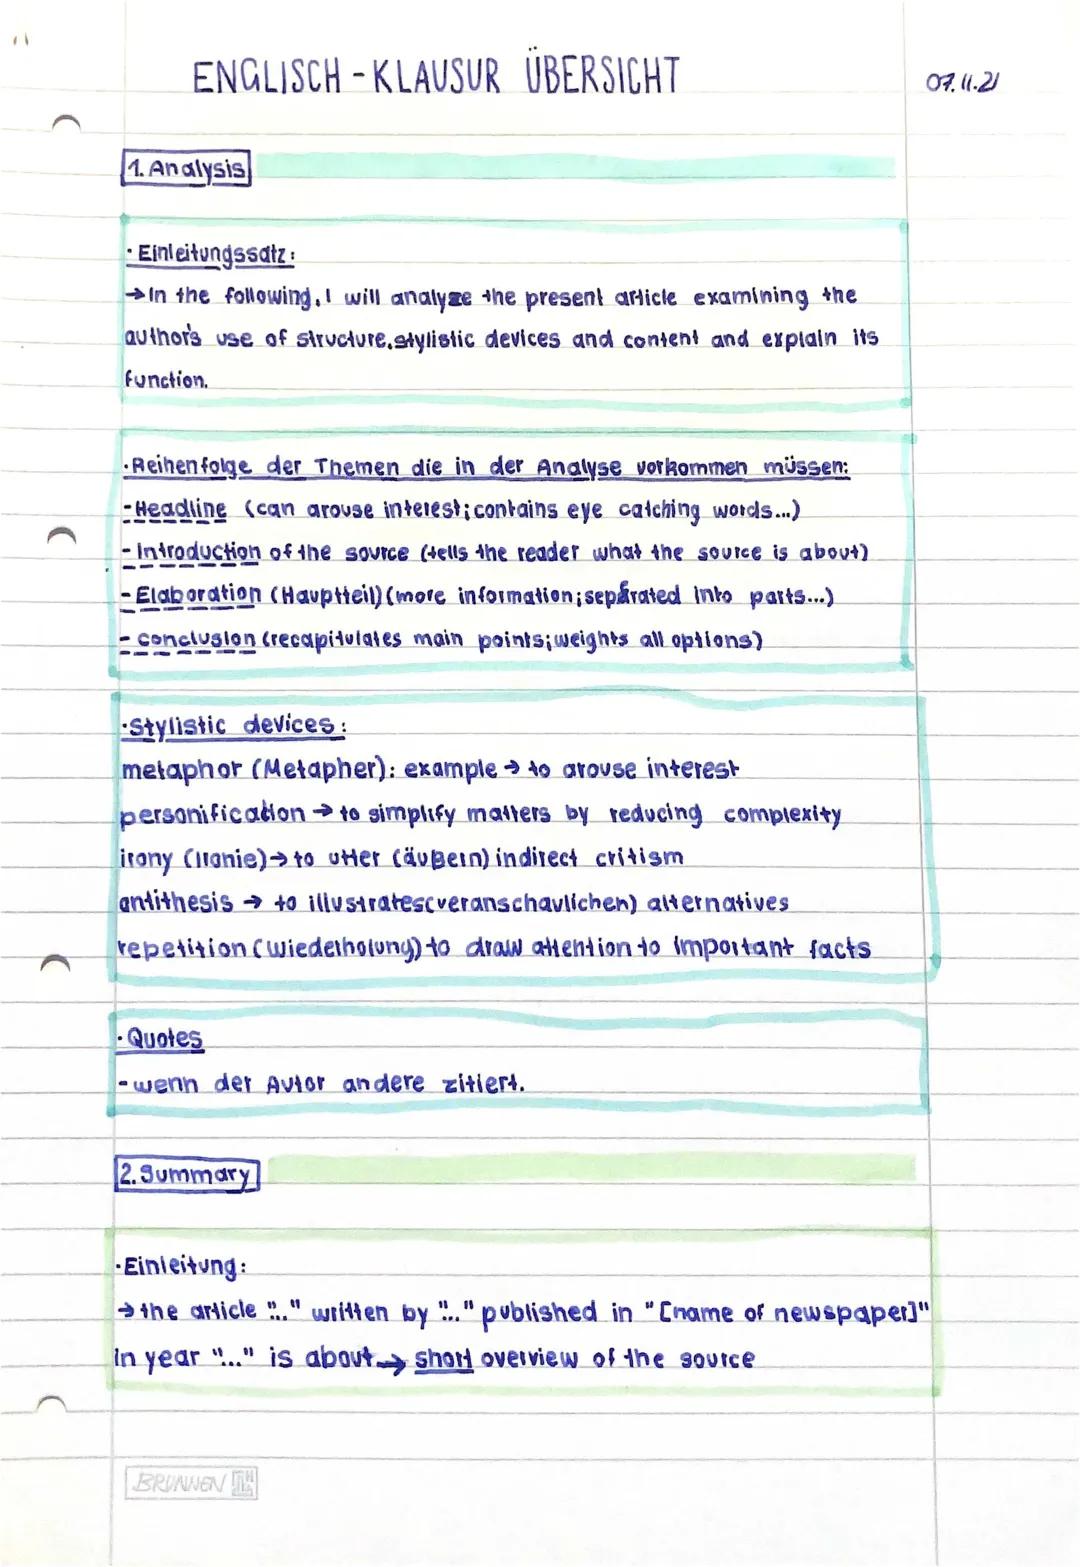 ENGLISCH-KLAUSUR ÜBERSICHT
07.11.21
1. Analysis
· Einleitungssatz:
→In the following, I will analyze the present article examining the
author's use of structure, stylistic devices and content and explain its
function.
·Reihenfolge der Themen die in der Analyse vorkommen müssen:
-Headline (can arouse interest; contains eye catching words...)
-Introduction of the source (tells the reader what the source is about)
-Elaboration (Hauptteil) (more information; separated into parts...)
-conclusion (recapitulates main points; weights all options)
·Stylistic devices:
metaphor (Metapher): example → to arouse interest
personification → to simplify matters by reducing complexity
irony (Ironie) → to utter (äußern) indirect critism
antithesis → to illustrates(veranschaulichen) alternatives
repetition (Wiederholung) to draw attention to important facts
·Quotes
-wenn der Autor andere zitiert.
2. Summary
·Einleitung:
→ the article "..." written by "..." published in "[name of newspaper]"
in year "..." is about → short overview of the source
BRUNNEN